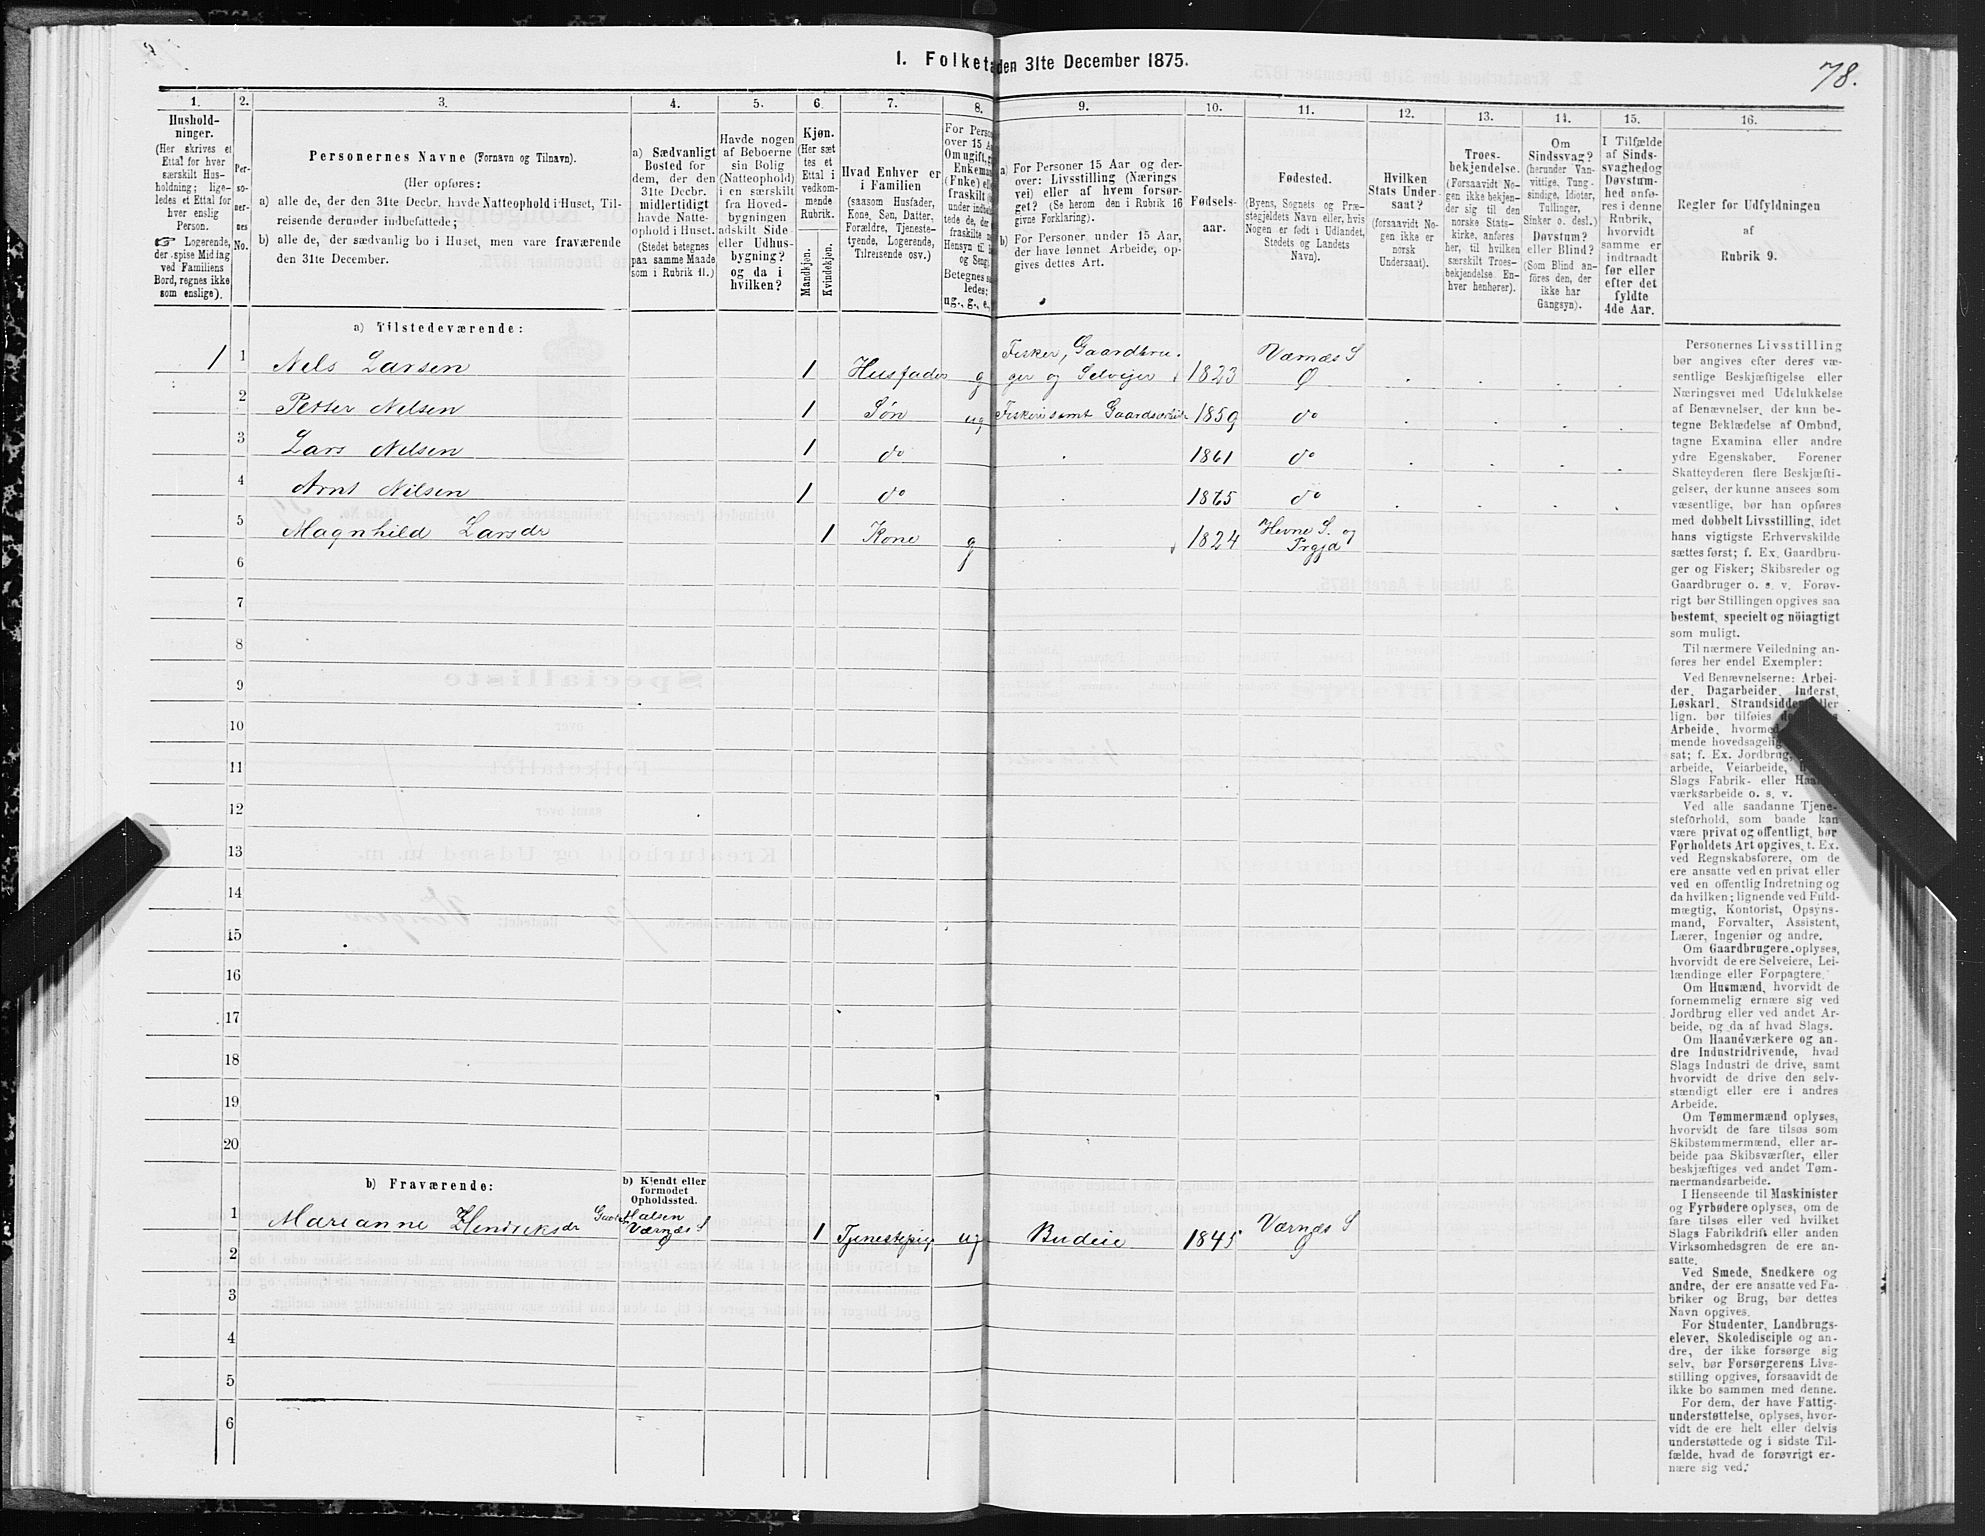 I. Folketa den 31te December 1875.
78.
1. 2. 3. 4. 5. 6. 7. 8. 9. 10. 11. 12. 13. 14. 15. 16.
Hushold-
ninger.
(Her skrives et
Ettal for hver
særskilt Hus-
holdning; lige-
ledes et Ettal for
hver enslig
Person.
☞ Logerende,
der spise Middag
ved Familiens
Bord, regnes ikke
som enslige).
Per-
so-
ner-
nes
No.
Personernes Navne (Fornavn og Tilnavn).
(Her opføres:
a) alle de, der den 31te Decbr. havde Natteophold i Huset, Til-
reisende derunder indbefattede;
b) alle de, der sædvanlig bo i Huset, men vare fraværende
den 31te December.
a) Sædvanligt
Bosted for
dem, der den
31te Decbr.
midlertidigt
havde Natte-
ophold i Huset.
(Stedet betegnes
paa samme Maade
som i Rubrik 11.)
Havde nogen
af Beboerne
sin Bolig
(Natteophold)
i en særskilt
fra Hoved-
bygningen
adskilt Side-
eller Udhus-
bygning?
og da i
hvilken?
Kjøn.
(Her sæt
tes et
Ettal i
vedkom-
mende
Rubrik.
Mandkjøn.
Kvindekjøn.
Hvad Enhver er
i Familien
(saasom Husfader,
Kone, Søn, Datter,
Forældre, Tjeneste-
tyende, Logerende,
Tilreisende osv.)
For Perso
over 15 A
Om ugift, g
Enkeman
(Enke) ell
fraskilt
under indbe
tede de, der
fraskilte
Hensyn til
og Seng).
Betegnes s
ledes:
ug., g., e.,
a) For Personer 15 Aar og der-
over: Livsstilling (Nærings
vei) eller af hvem forsør-
get? (Se herom den i Rubrik 16
givne Forklaring).
b) For Personer under 15 Aar,
der have lønnet Arbeide, op-
gives dettes Art.
Fødsels-
aar.
Fødested.
(Byens, Sognets og Præ-
stegjeldets Navn eller, hvis
Nogen er født i Udlandet,
Stedets og Landets
Navn).
Hvilken
Stats Under-
saat?
(forsaavidt No-
gen ikke er
norsk
Undersaat).
Troes-
bekjendelse.
(Forsaavidt No-
gen ikke bekjen-
der sig til den
norske Stats-
kirke, anføres
her, til hvilken
særskilt Troes-
bekjendelse En-
hver henhører).
Om
Sindssvag?
(herunder Van-
vittige, Tung-
sindige, Idioter,
Tullinger,
Sinker o. desl.)
Døvstum?
eller Blind?
(Som Blind an-
føres den, der
ikke har
Gangsyn).
I Tilfælde
af Sinds-
svaghed og
Døvstum-
hed anfø-
res i denne
Rubrik,
hvorvidt
samme er
indtraadt
før eller
efter det
fyldte
4de Aar.
Regler for Udfyldningen
af
Rubrik 9.
a) Tilstedeværende:
1 1 Nels Larsen 1 Husfader g Fisker, Gaardbru-
ger og Selveier 1823 Værnæs S
Ø
2 Petter Nelsen 1 Søn ug Fiskeri samt Gaardsarbeide 1859 do
3 Lars Nelsen 1 do 1861 do
4 Arnt Nilsen 1 do 1865 do
5 Magnhild Larsdr 1 Kone g 1824 Hevne S. og
Prgjd
6
7
8
9
10
11
12
13
14
15
16
17
18
19
20
b) Fraværende:
b) Kjendt eller
formodet
Opholdssted.
1 Marianne Henriksdr Halsen
Værnæs S
Ø 1 Tjenestepige ug Budeie 1845 Værnæs S
Ø
2
3
4
5
6
Personernes Livsstilling
bør angives efter deres væ-
sentlige Beskjæftigelse eller
Næringsvei med Udelukkelse
af Benævnelser, der kun be-
tegne Beklædelse af Ombud,
tagne Examina eller andre
ydre Egenskaber. Forener
Skatteyderen flere Beskjæfti-
gelser, der kunne ansees som
væsentlige, bør han opføres
med dobbelt Livsstilling, idet
hans vigtigste Erhvervskilde
sættes først; f. Ex. Gaardbru-
ger og Fisker; Skibsreder og
Gaardbruger o. s. v. Forøv-
rigt bør Stillingen opgives saa
bestemt, specielt og nöiagtigt
som muligt.
Til nærmere Veiledning an-
føres her endel Exempler:
Ved Benævnelserne: Arbei-
der, Dagarbeider, Inderst,
Løskarl, Strandsidder eller
lign. bør tilføies
Arbeide, hvormed
mende hovedsagelig
sat; f. Ex. Jordbrug,
arbeide, Veiarbeide,
Slags Fabrik- eller Haand-
værksarbeide o. s. v.
Ved alle saadanne Tjene-
steforhold, som baade kan
være privat og offentligt, bør
Forholdets Art opgives, t. Ex.
ved Regnskabsførere, om de
ere ansatte ved en privat eller
ved en offentlig Indretning og
da hvilken; lignende ved Fuld-
mægtig, Kontorist, Opsyns-
mand, Forvalter, Assistent,
Lærer, Ingeniør og andre.
Om Gaardbrugere oplyses,
hvorvidt de ere Selveiere, Lei-
lændinge eller Forpagtere.
Om Husmænd, hvorvidt de
fornemmelig ernære sig ved
Jordbrug eller ved andet Ar-
beide, og da af hvad Slags.
Om Haandværkere og an-
dre Industridrivende, hvad
Slags Industri de drive, samt
hvorvidt de drive den selv-
stændigt eller ere i andres
Arbeide.
Om Tømmermænd oplyses,
hvorvidt de fare tilsøs som
Skibstømmermænd, eller ar-
beide paa Skibsværfter, eller
beskjæftiges ved andet Tøm-
mermandsarbeide.
I Henseende til Maskinister
og Fyrbødere oplyses, om de
fare tilsøs eller ved hvilket
Slags Fabrikdrift eller anden
Virksomhedsgren de ere an-
satte.
Ved Smede, Snedkere og
andre, der ere ansatte ved Fa-
briker og Brug, bør dettes
Navn opgives.
For Studenter, Landbrugs-
elever, Skoledisciple og an-
dre, der ikke forsørge sig
selv, bør Forsørgerens Livs-
stilling opgives, forsaavidt de
ikke bo sammen med denne.
For dem, der have Fattig-
understøttelse, oplyses, hvor-
vidt de ere helt eller delvis
understøttede og i sidste Til-
fælde, hvad de forøvrigt er-
nære sig ved.